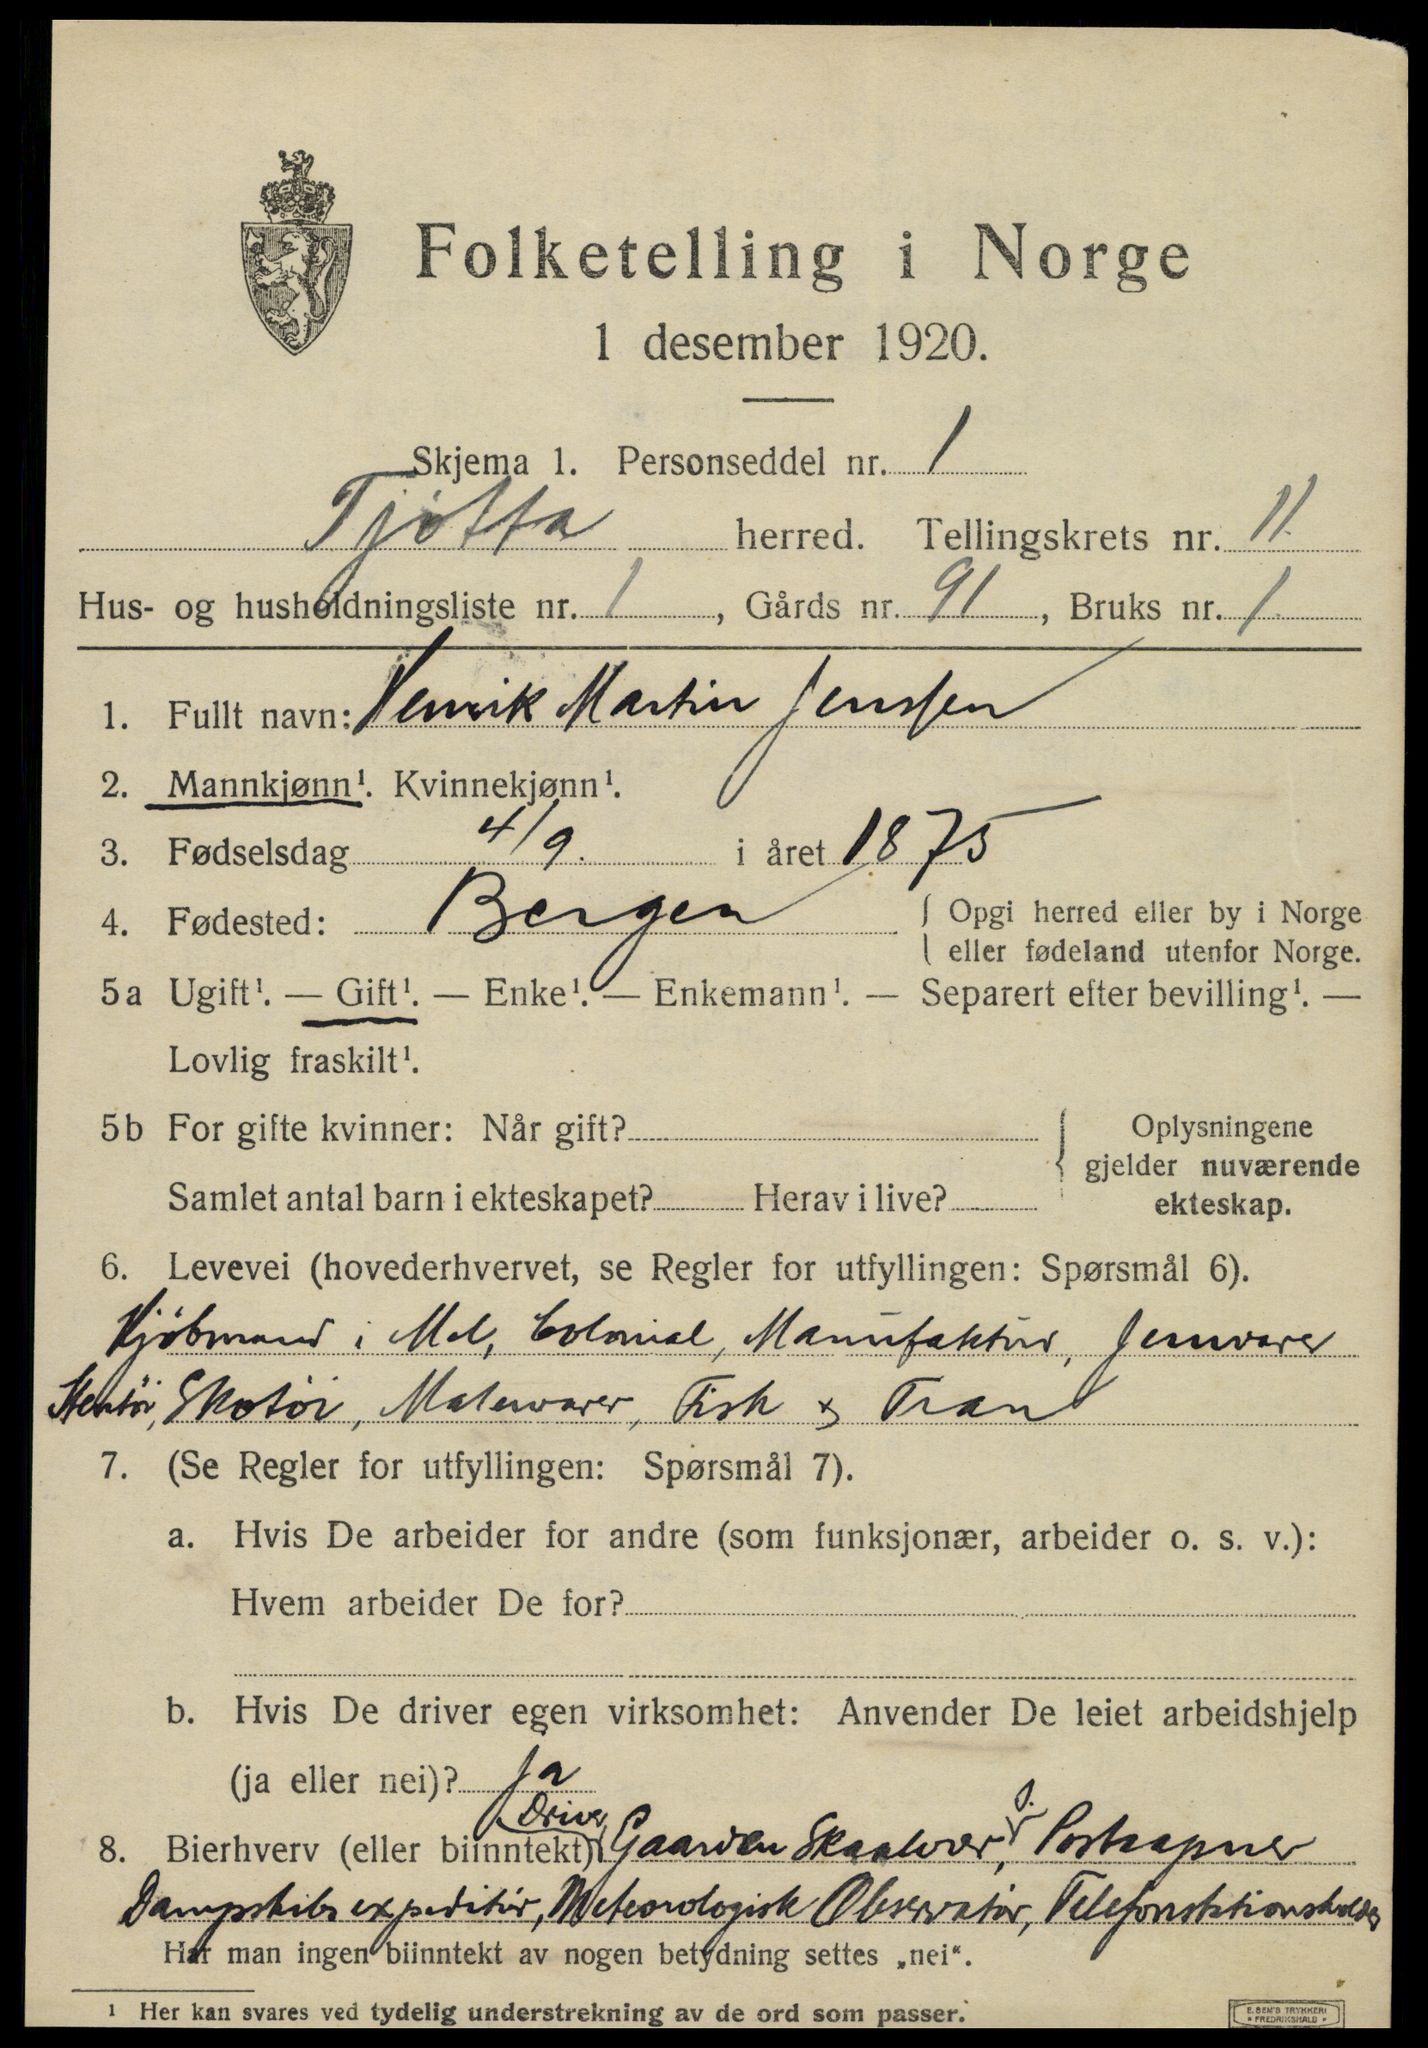 Folketelling i Norge
1 desember 1920.
Skjema 1. Personseddel nr. 1
Tjøtta herred. Tellingskrets nr. 11.
Hus- og husholdningsliste nr. 1, Gårds nr. 91, Bruks nr. 1.
1. Fullt navn: Henrik Martin Jenssen
2. Mannkjønn¹. Kvinnekjønn¹.
3. Fødselsdag 4/9. i året 1875
4. Fødested: Bergen { Opgi herred eller by i Norge
eller fødeland utenfor Norge.
5a Ugift¹. — Gift¹. — Enke¹. — Enkemann¹. — Separert efter bevilling¹. —
Lovlig fraskilt¹.
5b For gifte kvinner: Når gift? { Oplysningene
gjelder nuværende
Samlet antal barn i ekteskapet? Herav i live? ekteskap.
6. Levevei (hovederhvervet, se Regler for utfyllingen: Spørsmål 6).
Kjöbmand i Mel, Colonial, Manufaktur, Jernvarer
Stentöi, Skotöi, Malervarer, Fisk & Tran
7. (Se Regler for utfyllingen: Spørsmål 7).
a. Hvis De arbeider for andre (som funksjonær, arbeider o. s. v.):
Hvem arbeider De for?
b. Hvis De driver egen virksomhet: Anvender De leiet arbeidshjelp
(ja eller nei)? Ja
Driver
8. Bierhverv (eller biinntekt) Gaarden Skaalvær, Postaapner
Dampskibsexpeditör, Meteorologisk Observatör, Telefonstationsholder
Har man ingen biinntekt av nogen betydning settes „nei“.
¹ Her kan svares ved tydelig understrekning av de ord som passer.
E. SEM'S TRYKKERI
• FREDRIKSHALD •